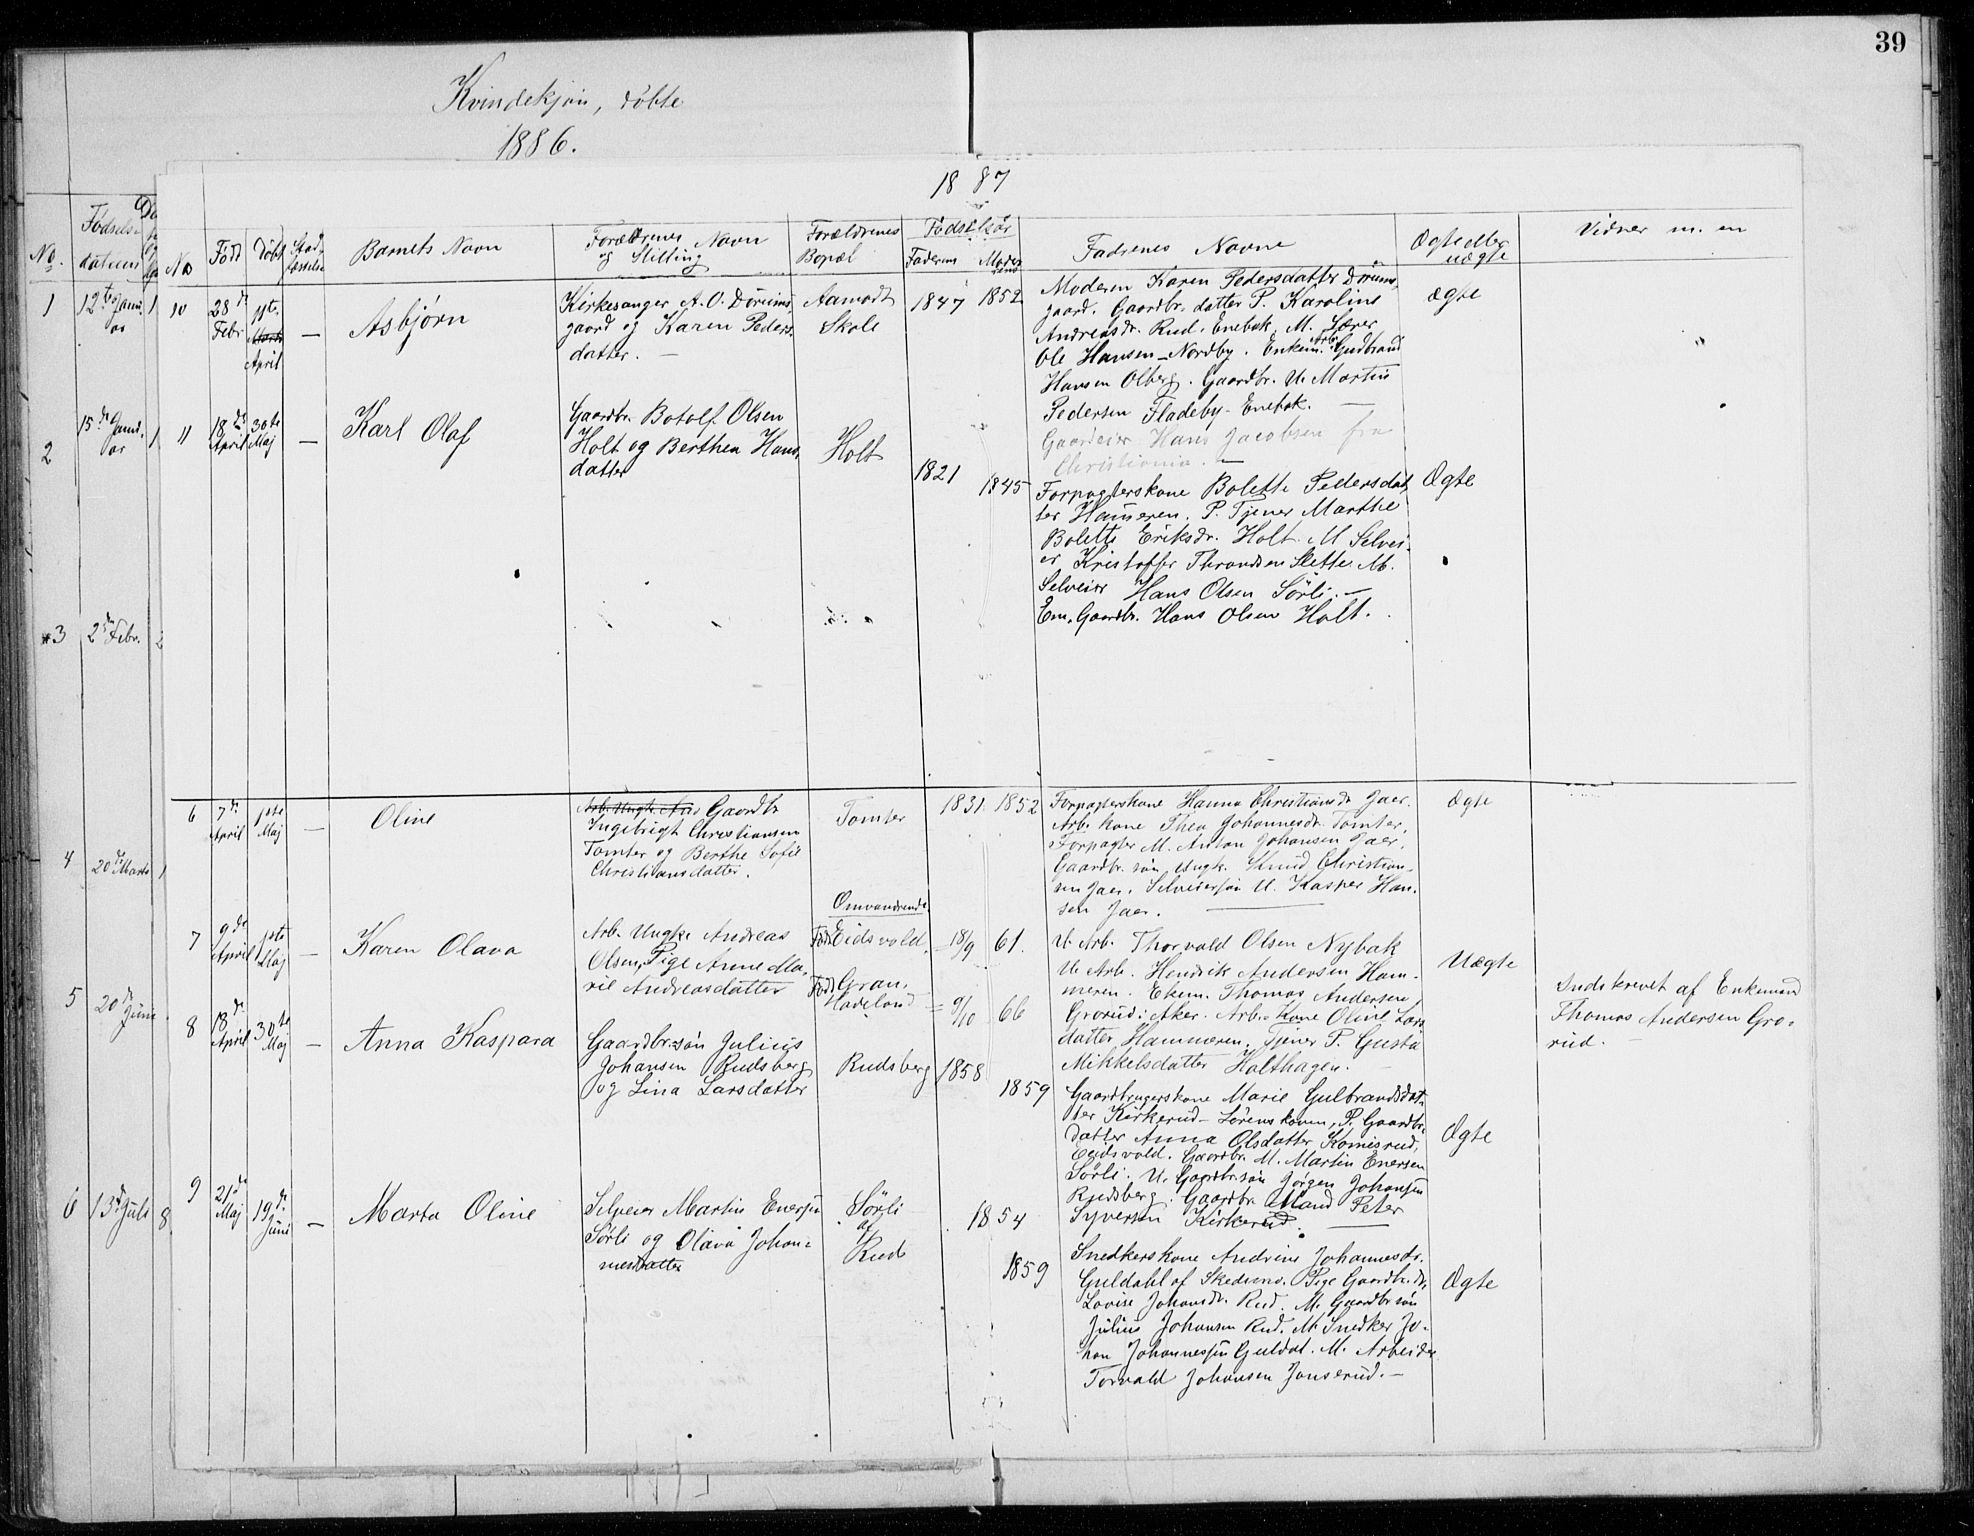 39
Kvindekjøn, døbte
1886.
No.
Fødsels-
datum
1
12te Janu-
ar
2
15de Janu-
ar
3
2den Febr.
4
20de Marts
5
20de Juni
6
13de Juli
1887
No
Født
Døbt
Stad-
fæstelse
Barnets Navn
Forældrenes Navn
og Stilling
Forældrenes
Bopæl
Fødselsaar
Faderens
Moder-
ens
Fadrenes Navne
Ægte eller
uægte
Vidner m. en
10
28de
Febr
11te
Marts
April
—
Asbjørn
Kirkesanger A. O. Dørums-
gaard og Karen Peders-
datter. —
Aamodt
Skole
1847
1852
Moderen Karen Pedersdatter Dørums-
gaard. Gaardbr. datter P. Karoline
Andreasdr. Rud. Enebak. M. Lærer
Ole Hansen - Nordby. Enkem. Arb. Gudbrand
Hansen Olberg. Gaardbr. U. Martin
Pedersen Fladeby - Enebak. —
Ægte
11
18de
April
30te
Maj
—
Karl Olaf
Gaardbr. Botolf Olsen
Holt og Berthea Hans-
datter
Holt
1821
1845
Gaardeier Hans Jacobsen fra
Christiania. —
Forpagterskone Bolette Pedersdat-
ter Hammeren. P. Tjener Marthe
Bolette Eriksdr. Holt. M. Selvei-
er Kristoffer Throndsen Slette. M.
Selveier Hans Olsen Sørli. —
Em. Gaardbr. Hans Olsen Holt.
Ægte
6
7de
April
1ste
Maj
—
Oline
Arb. Ungk. And Gaardbr
Ingebrigt Christiansen
Tomter og Berthe Sofie
Christiansdatter.
Tomter
1831.
1852
Forpagterskone Hanna Christiansdr Jaer.
Arb. kone Thea Johannesdr. Tomter.
Forpagter M. Anton Johansen Jaer.
Gaardbr. søn Ungk. Knud Christian-
sen Jaer. Selveiersøn U. Kasper Han-
sen Jaer. —
Ægte
7
9de
April
1ste
Maj
—
Karen Olava
Arb. Ungk. Andreas
Olsen, Pige Anne Ma-
rie Andreasdatter
Omvandrende.
Født Eidsvold.
Født Gran,
Hadeland
18/9 61.
9/10 66
U. Arb. Thorvald Olsen Nybak
U. Arb. Hendrik Andersen Ham-
meren. Ekem. Thomas Andersen
Grorud i Aker. Arb. Kone Oline Lars
datter Hammeren. Tjener P. Gusta
Mikkelsdatter Holthagen. —
Uægte
Indskrevet af Enkemand
Thomas Andersen Gro-
rud. —
8
18de
April
30te
Maj
—
Anna Kaspara
Gaardbr.søn Julius
Johansen Rudsberg
og Lina Larsdatter
Rudsberg
1858
1859
Gaardbrugerskone Marie Gulbrandsdat-
ter Kirkerud - Lørenskoven, P. Gaardbr.
datter Anna Olsdatter Komisrud,
Eidsvold. Gaardbr. M. Martin Enersen
Sørli. U. Gaardbr.søn Jørgen Johansen
Rudsberg. Gaardbr. Mand Peter
Syversen Kirkerud. —
Ægte
9
21de
Maj
19de
Juni
—
Marta Oline
Selveier Martin Enersen
Sørli og Olava Johan-
nesdatter
Sørli
af
Rud
1854
1859
Snedkerskone Andrine Johannesdr.
Guldahl af Skedsmo. Pige Gaardbr. dr.
Lovise Johansdr. Rud. M. Gaardbr søn
Julius Johansen Rud. M. Snedker Jo-
han Johannessen Guldal. M. Arbeider
Torvald Johansen Jonserud. —
Ægte